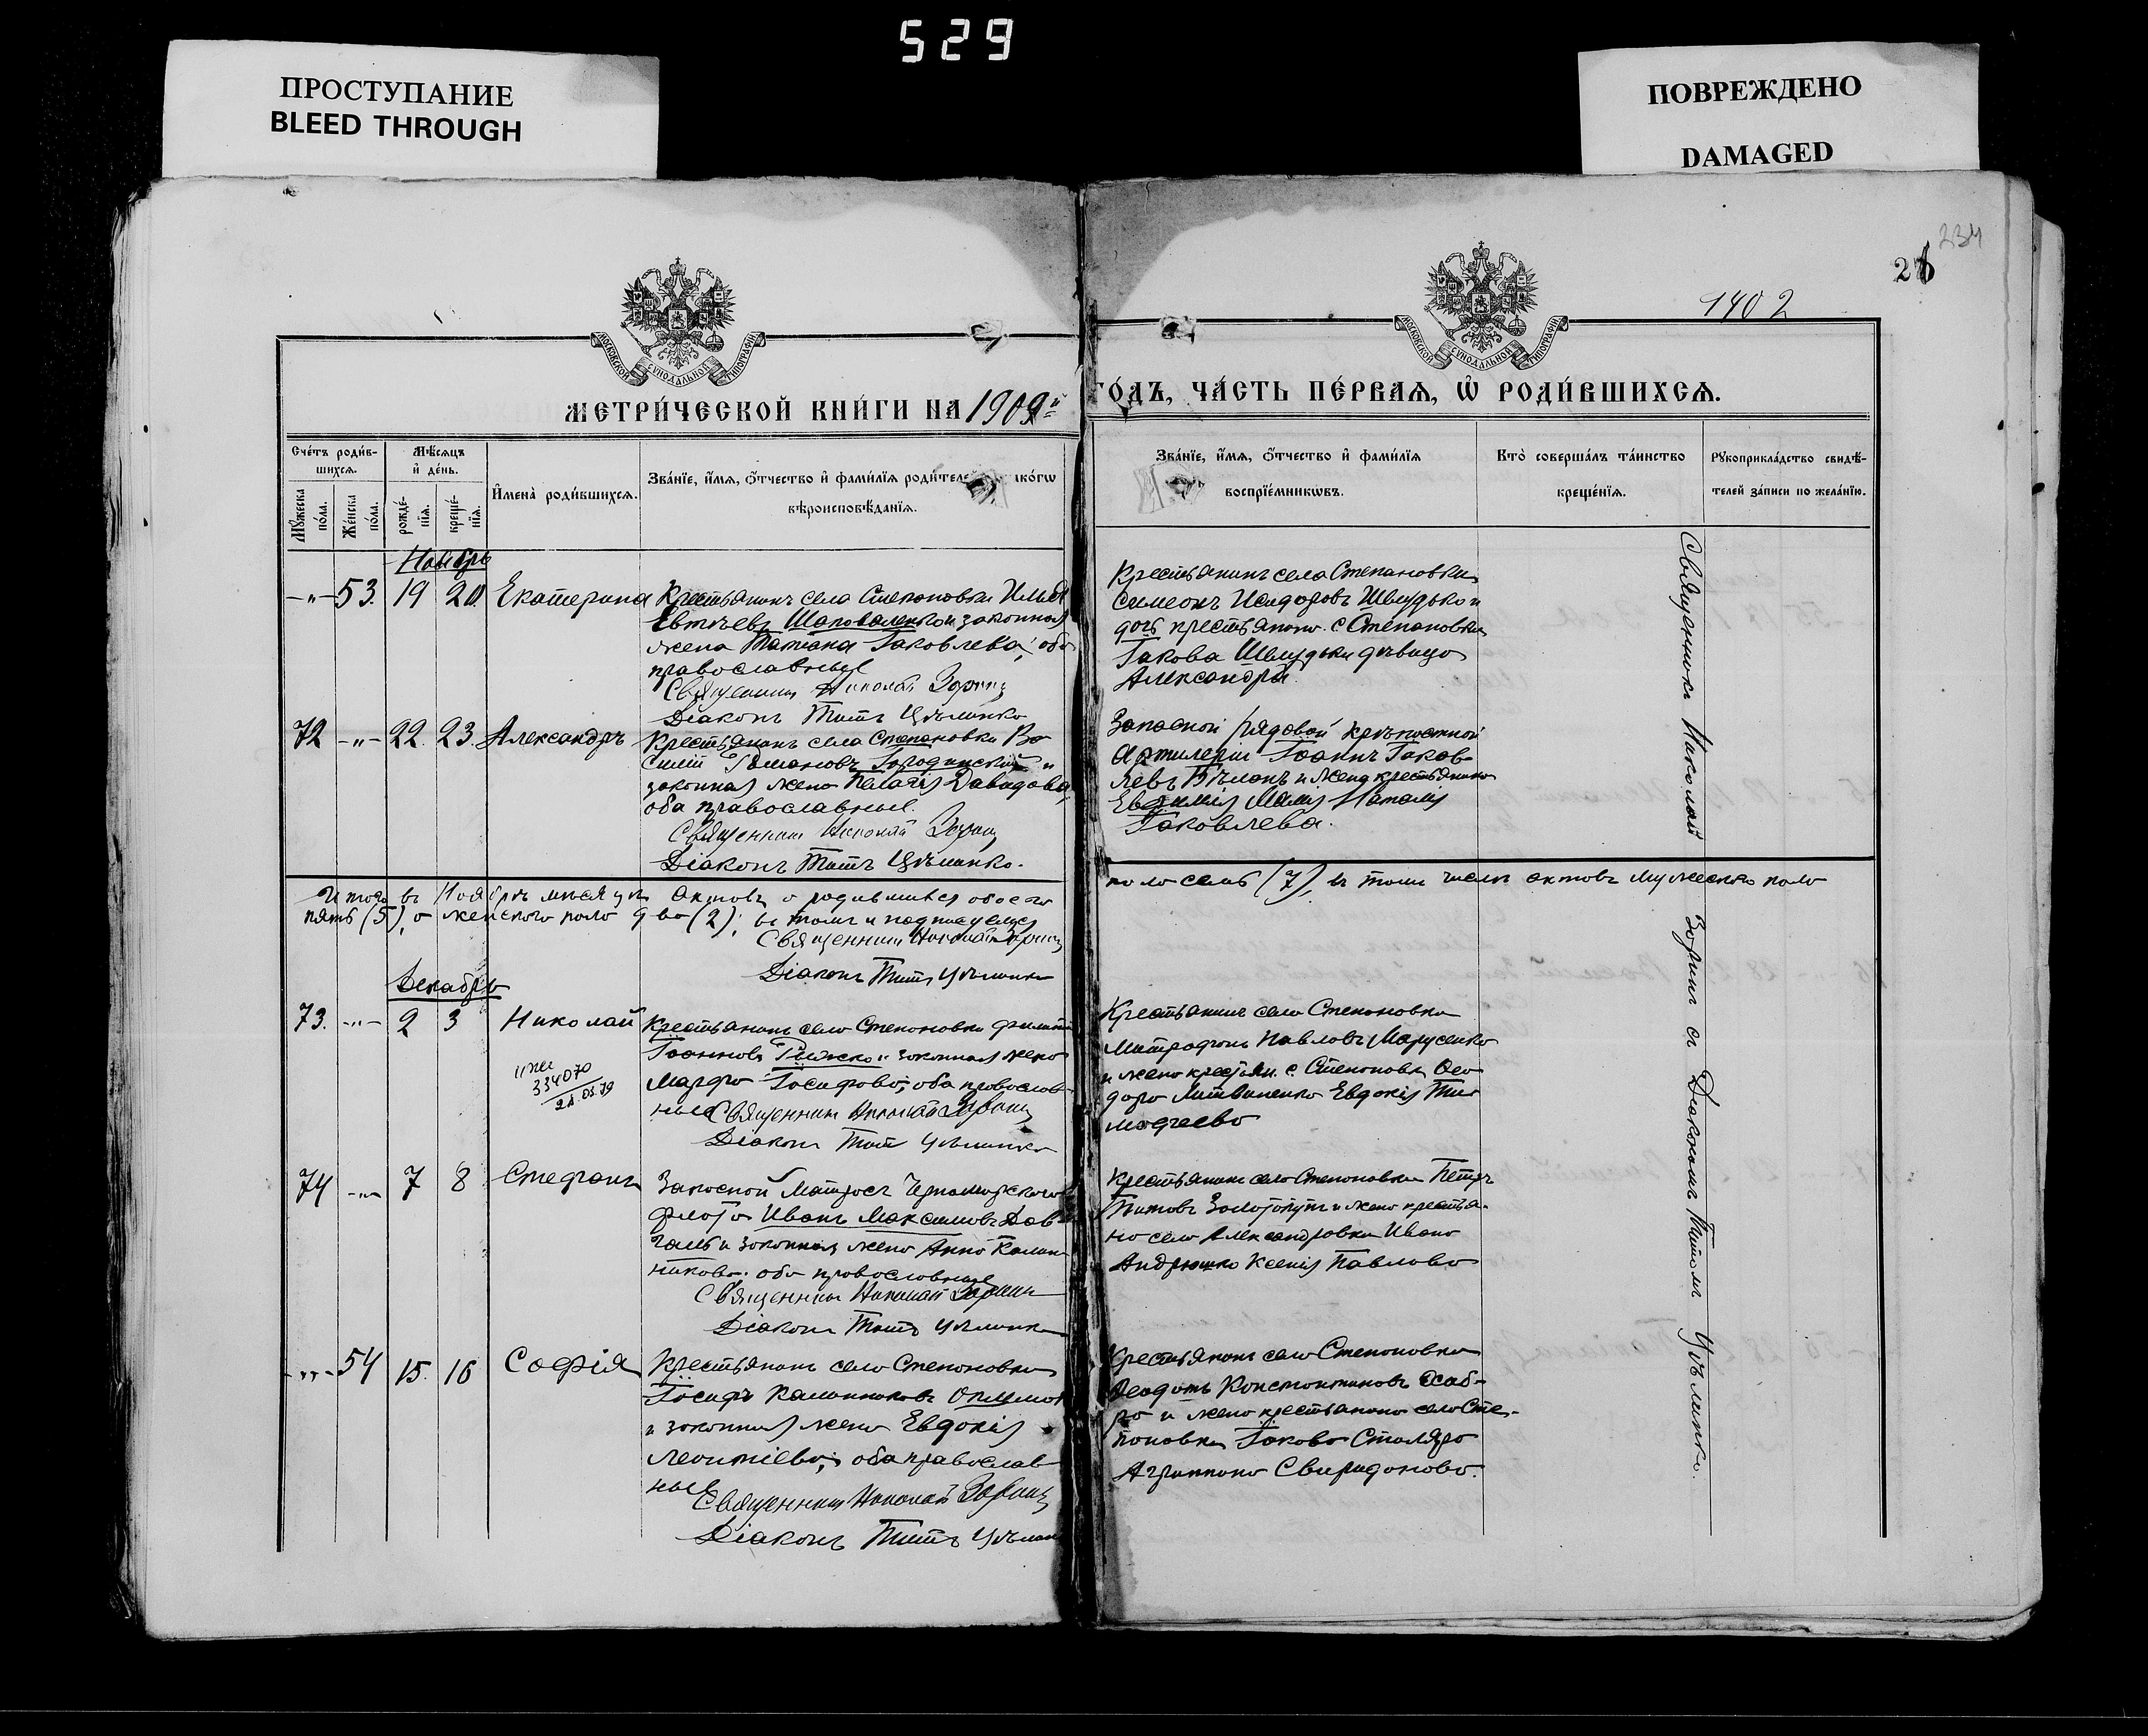 529
ПРОСТУПАНИЕ
BLEED THROUGH
ПОВРЕЖДЕНО
DAMAGED
234
1402
МОСКОВСКОЙ СУНОДАЛЬНОЙ ТИПОГРАФІИ
МОСКОВСКОЙ СУНОДАЛЬНОЙ ТИПОГРАФІИ
МЕТРИ́ЧЕСКОЙ КНИ́ГИ НА 1909й
ГО́ДЪ, ЧА́СТЬ ПЕ́РВАѦ, Ѡ РОДИ́ВШИХСѦ.
Сче́тъ роди́в-
шихсѧ.
Мꙋ́жеска
по́ла.
Же́нска
по́ла.
Мѣ́сѧцъ
и де́нь.
рожде́-
нїѧ.
креще́-
нїѧ.
И҆мена̀ роди́вшихсѧ.
Зва́нїе, и҆́мѧ, ѻ҆́тчество и҆ фами́лїѧ роди́тел
ко́гѡ
вѣроисповѣ́данїѧ.
Зва́нїе, и҆́мѧ, ѻ҆́тчество и҆ фами́лїѧ
воспрїе́мникѡвъ.
Кто̀ соверша́лъ та́инство
креще́нїѧ.
Рꙋкоприкла́дство свидѣ́-
телей за́писи по жела́нїю.
Ноябрь
-"- 53. 19 20. Екатерина
Крестьянинъ села Степановки Илья
Евтихевъ Шаповаленко и законная
жена Татіана Іаковлева, оба
православные
Священникъ Николай Зоринъ
Діаконъ Титъ Цѣлинко
Крестьянинъ села Степановки
Симеонъ Исидоровъ Швыдько и
дочь крестьянина с. Степановки
Іакова Швыдьки дѣвица
Александра.
72 -"- 22. 23. Александръ
Крестьянинъ села Степановки Ва-
силій Романовъ Городинскій и
законная жена Пелагія Давидова,
оба православные.
Священникъ Николай Зоринъ
Діаконъ Титъ Цѣлинко.
Запасной рядовой крѣпостной
Артилеріи Іоаннъ Іаков-
левъ Бѣланъ и жена крестьянина
Наталія
Іаковлева.
Итого въ Ноябрѣ мѣсяцѣ актовъ о родившихся обоего
пола семь (7), въ томъ числѣ актовъ мужескаго пола
пять (5), а женскаго пола два (2); въ томъ и подписуемся
Священникъ Николай Зоринъ
Діаконъ Титъ Цѣлинко
Декабрь
73. -"- 2 3 Николай
334070
21.05.79
Крестьянинъ села Степановки
Іоанновъ и законная жена
Марфа Іосифова, оба православ-
ные Священникъ Николай Зоринъ
Діаконъ Титъ Цѣлинко
Крестьянинъ села Степановки
Митрофанъ Павловъ Марусенко
и жена крестьян. с. Степановки Ѳео-
дора Литвиненко Евдокія Ти-
моѳеева
74 -"- 7 8 Стефанъ
Запасной Матросъ Черноморскаго
флота Иванъ Максимовъ Дов-
галь и законная жена Анна Калин-
никова, оба православные
Священникъ Николай Зоринъ
Діаконъ Титъ Цѣлинко
Крестьянинъ села Степановки Петръ
Титовъ Золотопупъ и жена крестья-
на села Александровки Ивана
Андрюшко Ксенія Павлова
-"- 54 15. 16 Софія
Крестьянинъ села Степановки
Іосифъ Калинниковъ
и законная жена Евдокія
Леонтіева, оба православ-
ные
Священникъ Николай Зоринъ
Діаконъ Титъ Цѣлинко
Крестьянинъ села Степановки
Ѳеодотъ Константиновъ
и жена крестьянина села Сте-
пановки Іакова Столяра
Агриппина Свиридонова.
Священникъ Николай Зоринъ съ Діакономъ Титомъ Цѣлинко.